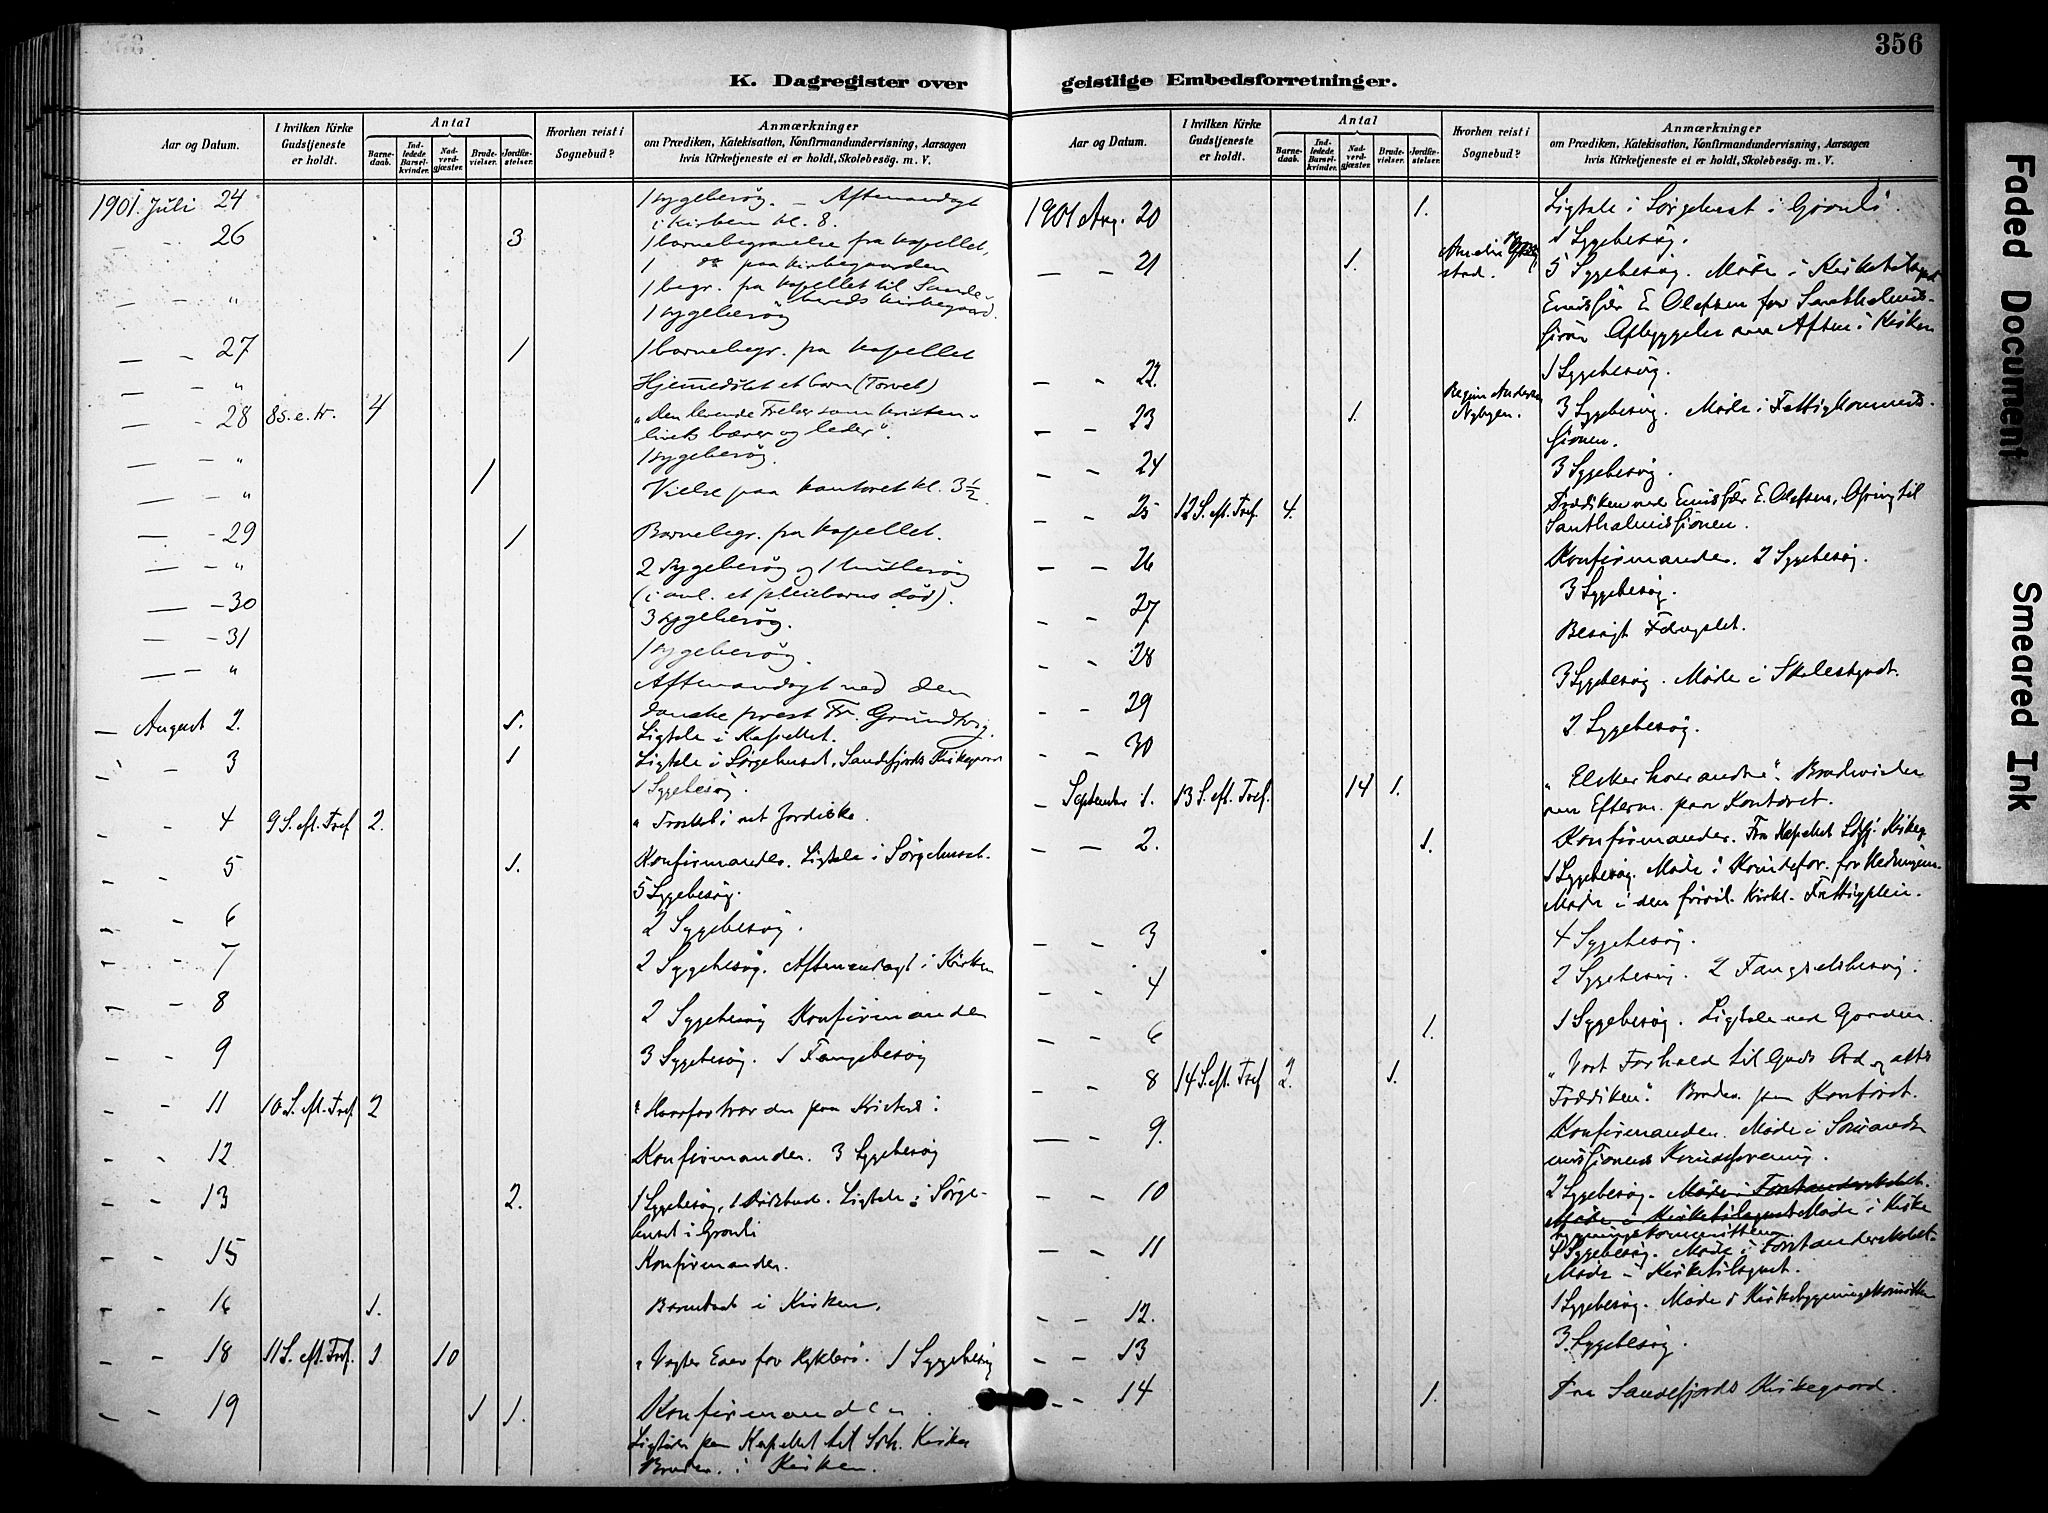 356
K. Dagregister over geistlige Embedsforretninger.
Aar og Datum.
I hvilken Kirke Gudstjeneste er holdt.
Antal
Barnedaab.
Indledede Barselkvinder.
Nadverdgjæster.
Brudevielser.
Jordfæstelser.
Hvorhen reist i Sognebud?
Anmærkninger
om Prædiken, Katekisation, Konfirmandundervisning, Aarsagen
hvis Kirketjeneste ei er holdt, Skolebesög. m. V.
1901. Juli 24 1 sygebesøg. – Aftenandagt
i kirken kl. 8.
26 3 1 barnebegravelse fra kapellet,
1 do paa kirkegaarden
1 begr. fra kapellet til Sande-
herreds kirkegaard.
" 1 sygebesøg
— - 27 1 1 barnebegr. fra kapellet
— - " Hjemmedøbt et barn (Torvet)
— - 28 8 s. e. tr. 4 "Den levende Frelser som kristen-
livets bærer og leder".
— - " 1 sygebesøg.
— - " 1 Vielse paa kontoret kl. 3½.
— - 29 1 Barnebegr. fra kapellet.
— - " 2 sygebesøg og 1 husbesøg
(i anl. et pleiebarns død).
— - 30 3 sygebesøg.
— - 31 1 sygebesøg.
— - " Aftenandagt ved den
danske prest Fr. Grundtvig.
— August 2. 1. Ligtale i Kapellet.
- - 3 1 Ligtale i Sørgehuset, Sandefjords Kirkegaard
1 Sygebesøg.
- - 4 9 S. eft. Tref 2. det Jordiske.
- - 5 1. Konfirmander. Ligtale i Sørgehuset.
5 Sygebesøg.
- - 6 2 Sygebesøg.
- - 7 2 Sygebesøg. Aftenandagt i Kirken
- - 8 2 Sygebesøg Konfirmander
- - 9 3 Sygebesøg. 1 Fangebesøg
- - 11 10 S. eft. Tref 2 paa Kristus.
- - 12 Konfirmander. 3 Sygebesøg
- - 13 2. 1 Sygebesøg, 1 Ligtale i Sørge-
huset i Grønli
- - 15 Konfirmander.
- - 16 1. Barnedaab i Kirken.
- - 18 11 S. eft. Tref. 1 10 "Vogter Eder for Hykleri. 1 Sygebesøg
- - 19 1 1. Konfirmanden.
Kapellet til Kirke
i Kirken.
Aar og Datum.
I hvilken Kirke Gudstjeneste er holdt.
Antal
Barnedaab.
Indledede Barselkvinder.
Nadverdgjæster.
Brudevielser.
Jordfæstelser.
Hvorhen reist i Sognebud?
Anmærkninger
om Prædiken, Katekisation, Konfirmandundervisning, Aarsagen
hvis Kirketjeneste ei er holdt, Skolebesög. m. V.
1901 Aug. 20 1. Ligtale i Sørgehuset i Grønli.
1 Sygebesøg.
— - 21 1. 5 Sygebesøg. Møde i Kirketilsynet
Emissær E. Olafsen for Santhalmis-
sion Aften i Kirken
— - 22. 1 Sygebesøg.
— - 23 1. Nybyen. 3 Sygebesøg. Møde i Fattigkommis-
sionen.
- - 24 3 Sygebesøg.
- - 25 12 S. eft. Tref. 4. Prædiken ved Emissær E. Olafsen, Ofring til
Santhalmissionen.
- - 26 Konfirmander. 2 Sygebesøg.
- - 27 3 Sygebesøg.
- - 28 Besøgt Fængslet.
- - 29 3 Sygebesøg. Møde i Skolestyret.
- - 30 2 Sygebesøg.
— September 1. 13 S. eft. Tref. 14 1. "Elsker hverandre". Brudevielse
om Efterm. paa Kontoret.
— - 2. 1. Konfirmander. Fra Kapellet
1 Sygebesøg. Møde i
Møde i den frivil. Kirkl. Fattigpleie.
— - 3 4 Sygebesøg.
- - 4 2 Sygebesøg. 2 Fængselsbesøg.
- - 6 1. 1 Sygebesøg. Ligtale ved Graven.
- - 8 14 S. eft. Tref 2. 1. "Vort Forhold til Guds Ord og
paa Kontoret.
— - 9. Konfirmanden. Møde i Sømands
missionens Kvindeforening.
- - 10 2 Sygebesøg. Møde i Forstanderskabet.
Møde i Kirketilsynet Møde i Kirke
bygningskommitteen
- - 11 Sygebesøg. Møde i Forstanderskabet-
Møde i Kirketilsynet.
- - 12. 1 Sygebesøg. Møde i Kirkebygningskomiteen
- - 13 3 Sygebesøg.
- - 14 1. Fra Sandefjords Kirkegaard.
Faded Document
Smeared Ink